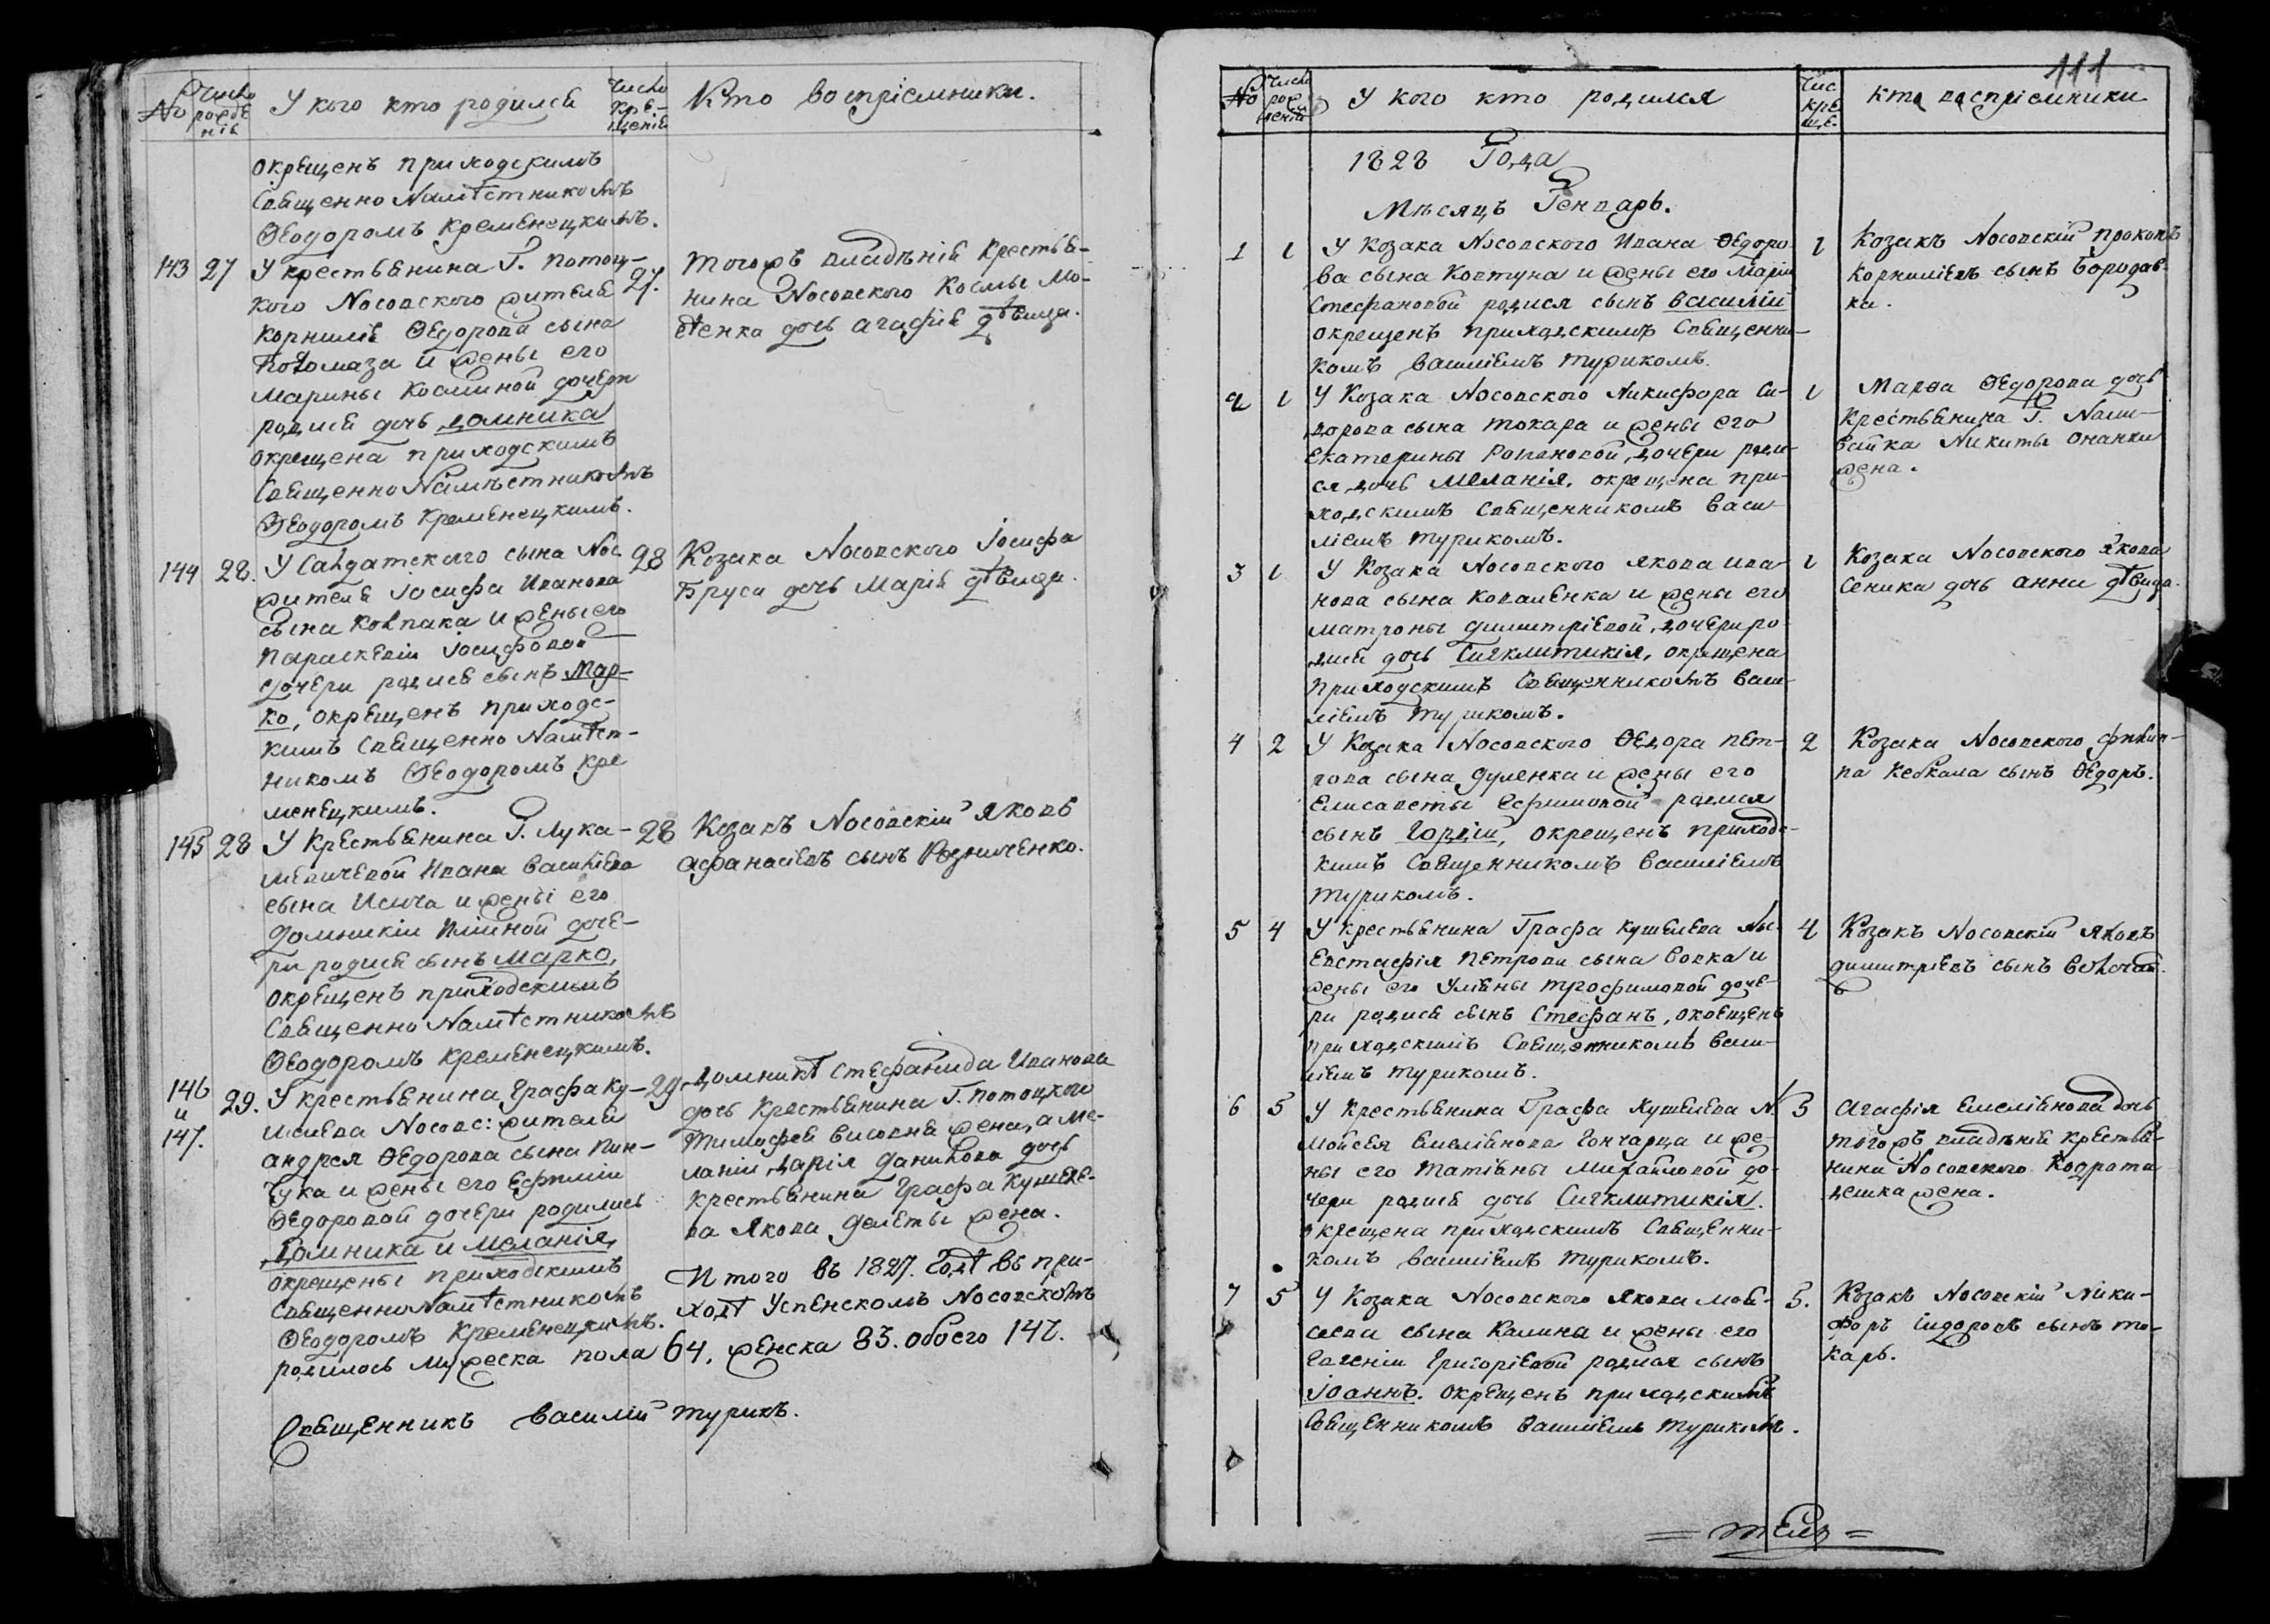 №
Число рожденія
У кого кто родился
Число крещенія
Кто воспріемники.
окрещенъ приходскимъ
Священно Намѣстникомъ
Ѳеодоромъ Кременецкимъ.
143 27 У крестьянина Г. Потоц-
кого Носовского жителя
Корнилія Ѳедорова сына
марины Косминой дочери
родися дочь домника
окрещена приходскимъ
Священно Намѣстникомъ
Ѳеодоромъ Кременецкимъ.
27. Тогожъ владѣнія Крестья-
нина Носовского Космы Мо-
дочь агафія дѣвица.
144 28. У Салдатского сына Нос.
жителя Іосифа Иванова
сына Ковпака и жены его
параскевіи Іосифовой
дочери родися сынъ Мар-
ко, окрещенъ приходс-
кимъ Священно Намѣст-
никомъ Ѳеодоромъ Кре
менецкимъ.
28 Козака Носовского Іосифа
Бруса дочь Марія дѣвица.
145 28 У Крестьянина Г. Лука-
шевичевой Ивана василіева
сына Исича и жены его
домникіи Иліиной доче-
ри родися сынъ Марко,
окрещенъ приходскимъ
Священно Намѣстникомъ
Ѳеодоромъ Кременецкимъ.
28 Козакъ Носовскій Яковъ
афанасіевъ сынъ Резниченко.
146 и 147. 29. У крестьянина Графа Ку-
шелева Носовс: жителя
андрея Ѳедорова сына Пин-
чука и жены его Ефиміи
Ѳедоровой дочери родились
Домника и Меланія,
окрещены приходскимъ
Священно Намѣстникомъ
Ѳеодоромъ Кременецкимъ.
29. Домникѣ Стефанида Иванова
дочь Крестьянина Г. Потоцкого
Тимофея жена, а Ме-
ланіи Дарія Данилова дочь
крестьянина Графа Кушеле-
ва Якова Делеты жена.
Итого въ 1827. Годѣ въ при-
ходѣ Успенскомъ Носовскомъ
родилось мужеска пола 64, женска 83. обоего 147.
Священникъ Василій Турикъ.
111
№
Число рожденій
У кого кто родился
Чис креще.
Кто воспріемники
1828 Года
Мѣсяцъ Генварь.
1 1 У Козака Носовского Ивана Ѳедоро-
ва сына Ковтуна и жены его Маріи
Стефановой родися сынъ василій
окрещенъ приходскимъ Священни-
комъ василіемъ турикомъ.
1 Козакъ Носовскій прокопъ
Корниліевъ сынъ Бородав-
ка.
2 1 У Козака Носовского Никифора Си-
дорова сына токара и жены его
Екатерины Романовой дочери роди-
ся дочь Меланія, окрещена при-
ходскимъ Священникомъ васи-
ліемъ Турикомъ.
1 Марѳа Ѳедорова дочь
Крестьянина Г.
Никиты Онанки
жена.
3 1 У Козака Носовского Якова Ива
нова сына Коваленка и жены его
матроны димитріевой дочери ро-
дися дочь Сигклитикія, окрещена
приходскимъ Священникомъ васи-
ліемъ Турикомъ.
1 Козака Носовского Якова
Сеника дочь анна дѣвица.
4 2 У Козака Носовского Ѳедора Пет-
рова сына Дуленка и жены его
Елисаветы Ефимовой родися
сынъ Гордій, окрещенъ приходс-
кимъ Священникомъ василіемъ
турикомъ.
2 Козака Носовского Филип-
па Кебкала сынъ Ѳедоръ.
5 4 У крестьянина Графа Кушелева Нос.
Евстафія Петрова сына вовка и
жены его Уліяны трофимовой доче-
ри родися сынъ Стефанъ, окрещенъ
приходскимъ Священникомъ васи-
ліемъ турикомъ.
4 Козакъ Носовскій Яковъ
димитріевъ сынъ
6 5 У Крестьянина Графа Кушелева Н.
Мойсея Емеліянова Гончарца и же-
ны его татіяны Михайловой до-
чери родися дочь Сигклитикія.
окрещена приходскимъ Священни-
комъ василіемъ турикомъ.
5 Агафія Емеліянова дочь
тогожъ владѣнія крестья-
нина Носовского Кодрата
жена.
7 5 У Козака Носовского Якова мой-
сеева сына Калина и жены его
Евгеніи Григоріевой родися сынъ
Іоаннъ. окрещенъ приходскимъ
Священникомъ василіемъ турикомъ.
5. Козакъ Носовскій Ники-
форъ Сидоровъ сынъ то-
карь.